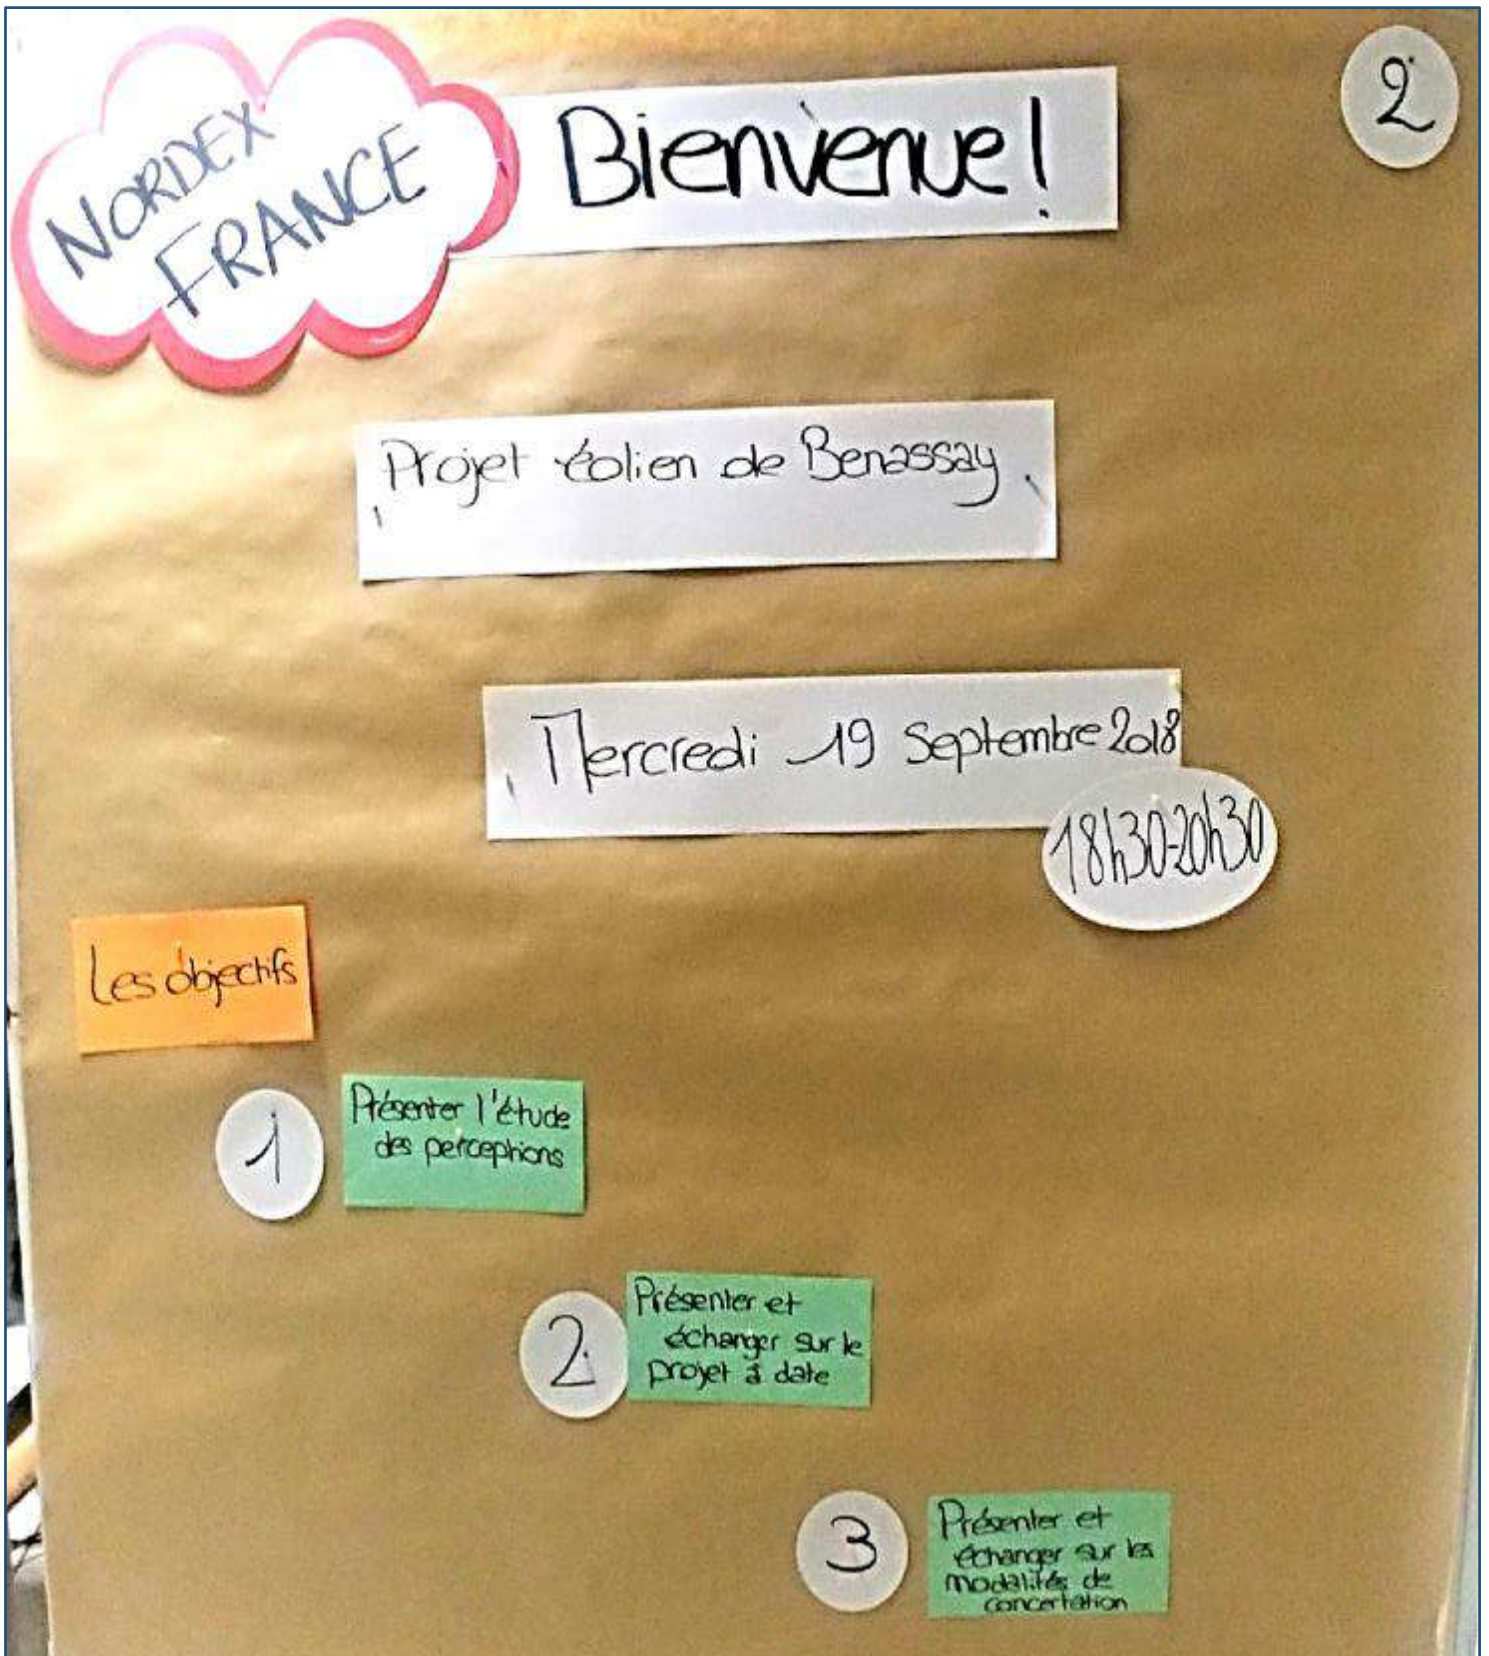 NORDEX
FRANCE
Bienvenue!
2
Projet éolien de Benassay
Mercredi 19 Septembre 2018
18h30-20h30
Les objectifs
1
Présenter l'étude
des perceptions
2
Présenter et
échanger sur le
projet à date
3
Présenter et
échanger sur les
modalités de
concertation